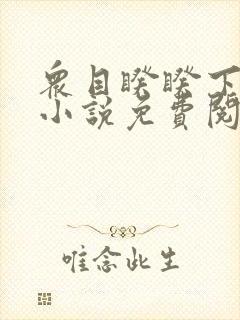 衆目睽睽下
小說免費閱
唯念此生